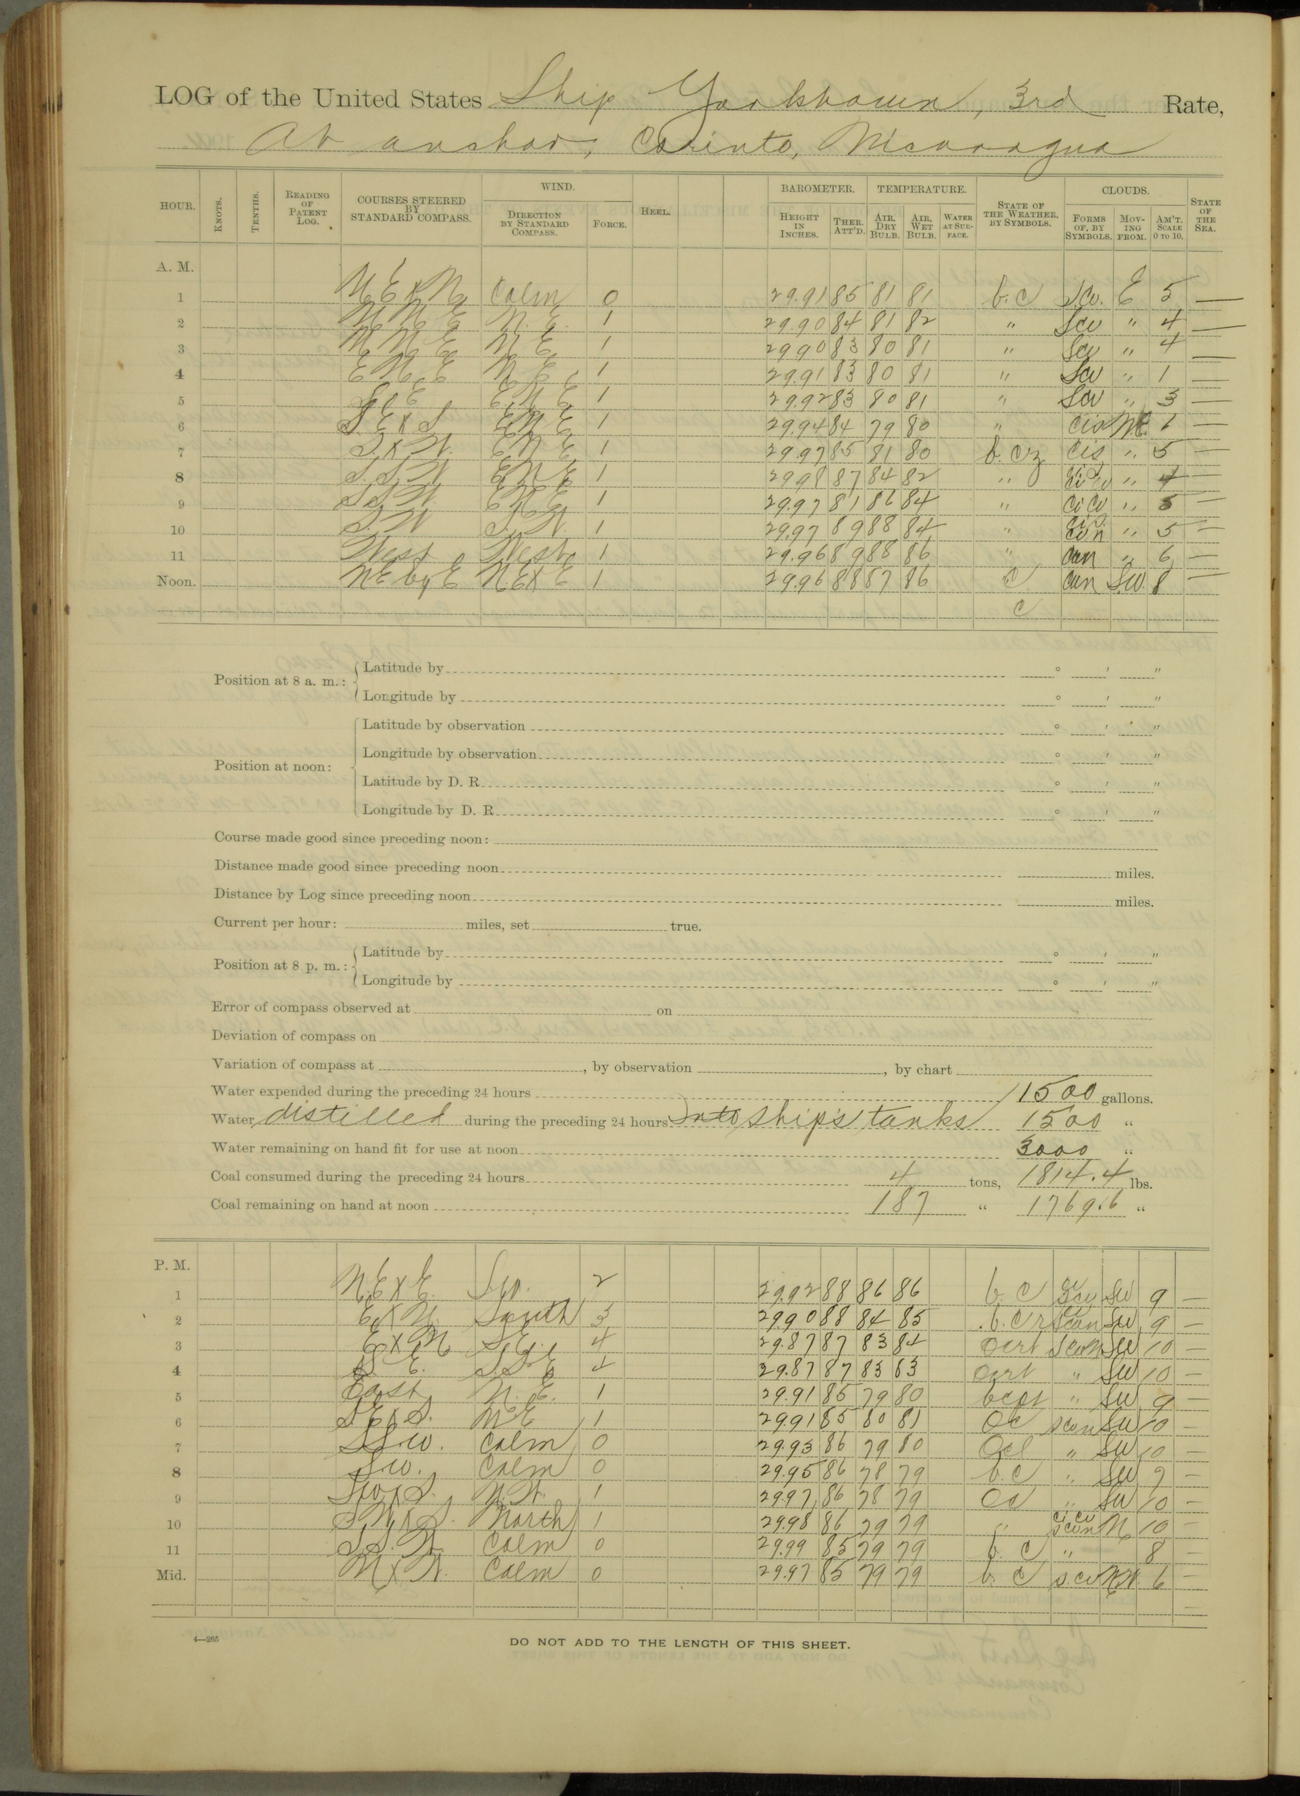 LOG of the United States Ship Yorktown, 3rd Rate,
At anchor, Corinto, Nicaragua
HOUR. KNOTS. TENTHS. READING OF PATENT LOG. COURSES STEERED BY STANDARD COMPASS. WIND. DIRECTION BY STANDARD COMPASS. FORCE. HEEL. BAROMETER. HEIGHT IN INCHES. THER. ATT'D. TEMPERATURE. AIR, DRY BULB. AIR, WET BULB. WATER AT SURFACE. STATE OF THE WEATHER, BY SYMBOLS. CLOUDS. FORMS OF, BY SYMBOLS. MOVING FROM. AM'T. SCALE 0 TO 10. STATE OF THE SEA.
A. M.
1 NExN Calm 0 29.91 85 81 81 b.c S.cu. E 5 —
2 NNE N.E. 1 29.90 84 81 82 " Scu " 4 —
3 NNE NE 1 29.90 83 80 81 " Scu " 4 —
4 ENE NE 1 29.91 83 80 81 " Scu " 1 —
5 SE ENE 1 29.92 83 80 81 " Scu " 3 —
6 SExS ENE 1 29.94 84 79 80 " cis NE 1 —
7 SxW. ENE 1 29.97 85 81 80 b.cz cis " 5 —
8 SSW ENE 1 29.98 87 84 82 " " 4 —
9 SSW ENE 1 29.97 81 86 84 " CiCu " 5 —
10 SW S.W. 1 29.97 89 88 84 " " 5 —
11 West West 1 29.96 89 88 86 " cun " 6 —
Noon. NEbyE NExE 1 29.96 88 87 86 c cun S.W. 8 —
c
Position at 8 a. m.: Latitude by ° ′ ″
Longitude by ° ′ ″
Position at noon: Latitude by observation ° ′ ″
Longitude by observation ° ′ ″
Latitude by D. R. ° ′ ″
Longitude by D. R. ° ′ ″
Course made good since preceding noon:
Distance made good since preceding noon miles.
Distance by Log since preceding noon miles.
Current per hour: miles, set true.
Position at 8 p. m.: Latitude by ° ′ ″
Longitude by ° ′ ″
Error of compass observed at on
Deviation of compass on
Variation of compass at , by observation , by chart
Water expended during the preceding 24 hours 1500 gallons.
Water distilled during the preceding 24 hours into ship's tanks 1500 "
Water remaining on hand fit for use at noon 3000 "
Coal consumed during the preceding 24 hours 4 tons, 1814.4 lbs.
Coal remaining on hand at noon 187 " 1769.6 "
P. M.
1 N.ExE. S.W. 2 29.92 88 86 86 b.c SW 9 —
2 ExN. South 3 29.90 88 84 85 b.c.r Scun SW 9 —
3 ExN S.E. 4 29.87 87 83 84 Ocrt Scun SW 10 —
4 S.E. S.S.E 4 29.87 87 83 83 Ocrt " SW 10 —
5 East N.E. 1 29.91 85 79 80 " SW 9 —
6 SExS. NE 1 29.91 85 80 81 Oc Scun SW 10 —
7 SSW. Calm 0 29.93 86 79 80 Ocl " SW 10 —
8 S.W. Calm 0 29.95 86 78 79 b.c " SW 9 —
9 SWxS. N.W. 1 29.97 86 78 79 Oc " SW 10 —
10 SWxS. North 1 29.98 86 79 79 " ci cu scun N 10 —
11 S.S.W. Calm 0 29.99 85 79 79 b.c " 8 —
Mid. NxW. Calm 0 29.97 85 79 79 b.c s.cu NW. 6 —
4—265
DO NOT ADD TO THE LENGTH OF THIS SHEET.